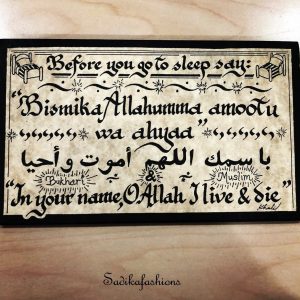 Before you go to sleep say:
"Bismika Allahumma amootu
wa ahyaa"
باسمك اللهم أموت وأحيا
Bukhari & Muslim
"In your name, O Allah I live & die"
Khalid
Sadikafashions